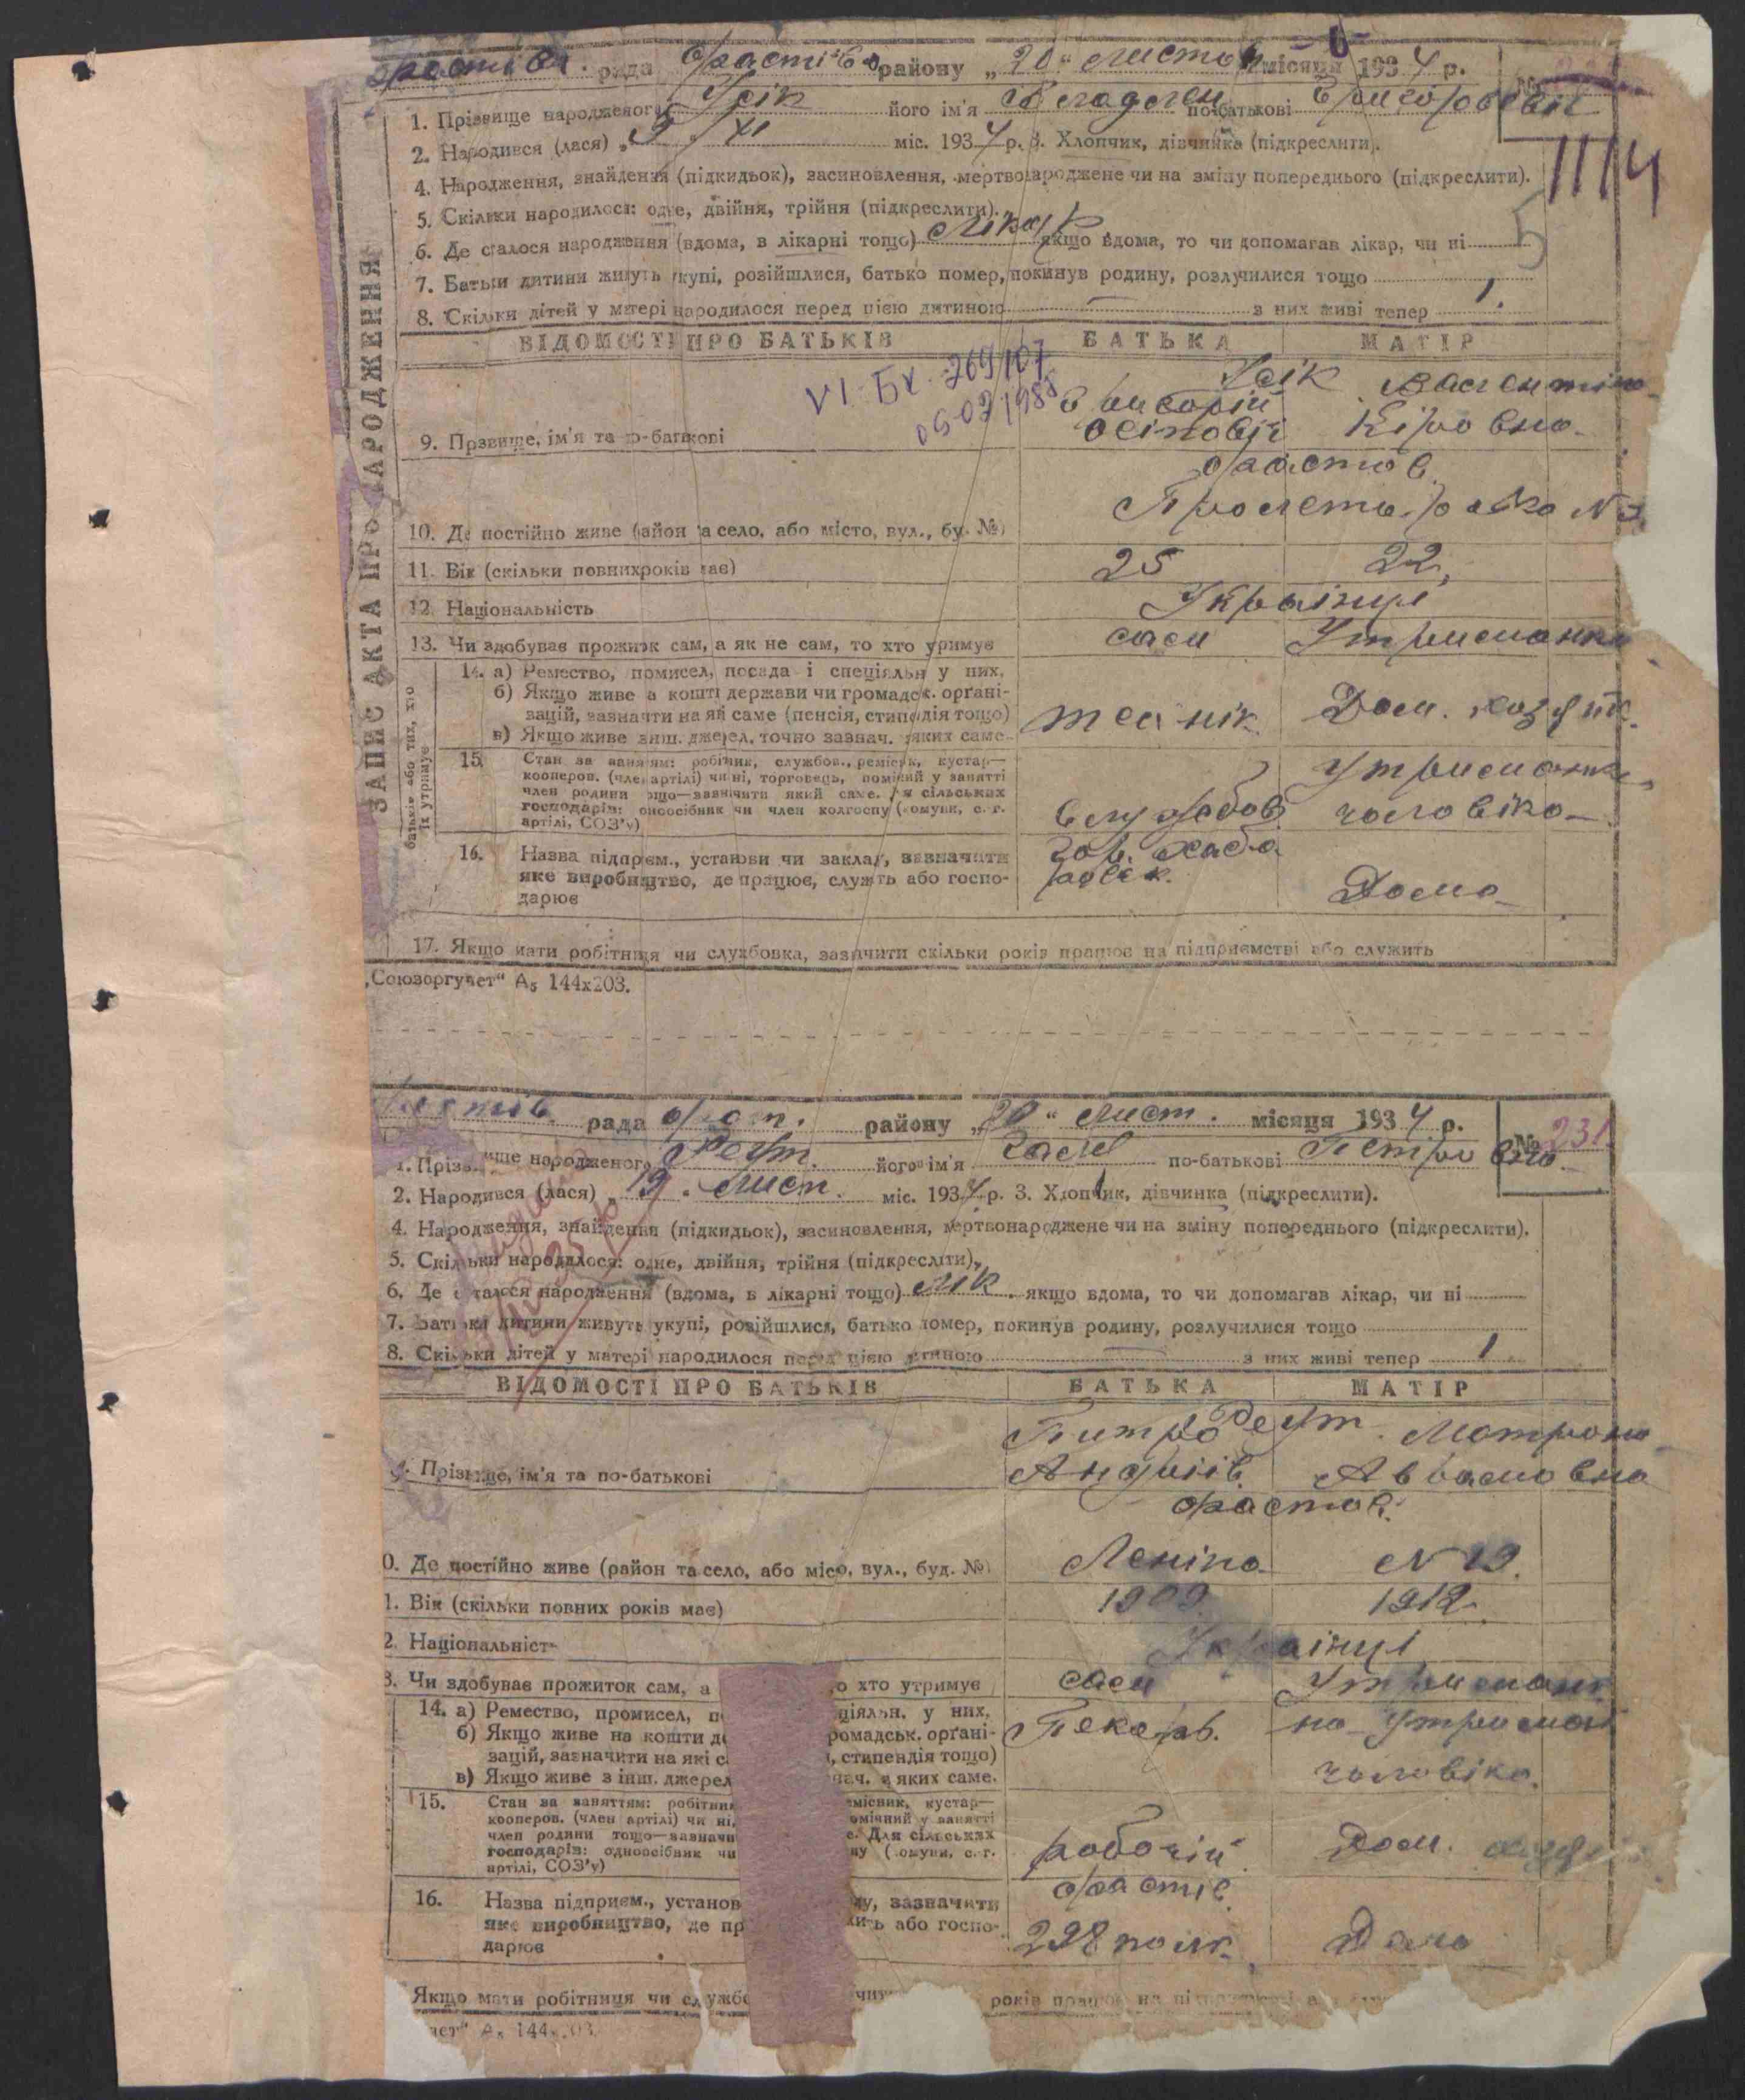 рада району „20" листоп місяця 1934 р. №
1. Прізвище народженого Усік його ім'я по-батькові Григорович
2. Народився (лася) „9. XI міс. 1934 р. 3. Хлопчик, дівчинка (підкреслити).
1114
4. Народження, знайдення (підкидьок), засиновлення, мертвонароджене чи на зміну попереднього (підкреслити).
5. Скільки народилося: одне, двійня, трійня (підкреслити).
6. Де сталося народження (вдома, в лікарні тощо) Лікар якщо вдома, то чи допомагав лікар, чи ні
7. Батьки дитини живуть укупі, розійшлися, батько помер, покинув родину, розлучилися тощо
8. Скільки дітей у матері народилося перед цією дитиною — з них живі тепер 1.
ЗАПИС АКТА ПРО НАРОДЖЕННЯ
ВІДОМОСТІ ПРО БАТЬКІВ БАТЬКА МАТІР
VI-БК 269107
Усік Валентина
Григорій
9. Прізвище, ім'я та по-батькові Осіпович Кіровна
Фастов
Пролетарська N
10. Де постійно живе (район та село, або місто, вул., буд. №)
11. Вік (скільки повних років має) 25 22
12. Національність Українці
13. Чи здобуває прожиток сам, а як не сам, то хто утримує сам Утриманка
батьків або тих, хто їх утримує
14. а) Ремество, промисел, посада і спеціяльн. у них.
б) Якщо живе на кошти держави чи громадськ. органі-
зацій, зазначити на які саме (пенсія, стипендія тощо) Дом. хозяйк.
в) Якщо живе з інш. джерел, точно зазнач. з яких саме.
15. Стан за заняттям: робітник, службов., ремісник, кустар—
кооперов. (член артілі) чи ні, торговець, помічний у занятті Утриманка
член родини тощо—зазначити який саме. Для сільських
господарів: одноосібник чи член колгоспу (комуни, с. г. Службов. чоловіка
артілі, СОЗ'у)
16. Назва підприєм., установи чи закладу, зазначити
яке виробництво, де працює, служить або госпо-
дарює Дома
17. Якщо мати робітниця чи службовка, зазначити скільки років працює на підприємстві або служить
„Союзоргучет" А5 144х203.
рада району „20" лист. місяця 1934 р. № 231
1. Прізвище народженого Реут. його ім'я по-батькові Петровна
2. Народився (лася) „19. лист. міс. 1934 р. 3. Хлопчик, дівчинка (підкреслити).
4. Народження, знайдення (підкидьок), засиновлення, мертвонароджене чи на зміну попереднього (підкреслити).
5. Скільки народилося: одне, двійня, трійня (підкреслити).
6. Де сталося народження (вдома, в лікарні тощо) Лік. якщо вдома, то чи допомагав лікар, чи ні
7. Батьки дитини живуть укупі, розійшлися, батько помер, покинув родину, розлучилися тощо
8. Скільки дітей у матері народилося перед цією дитиною — з них живі тепер 1
ВІДОМОСТІ ПРО БАТЬКІВ БАТЬКА МАТІР
Реут
Питро Мотрона
9. Прізвище, ім'я та по-батькові Андріів. Аврамовна
Фастов.
0. Де постійно живе (район та село, або місто, вул., буд. №) Леніна N 19.
1. Вік (скільки повних років має) 1909 1912
2. Національність Українці
3. Чи здобуває прожиток сам, а о хто утримує сам Утриманк
14. а) Ремество, промисел, п ціяльн. у них.
б) Якщо живе на кошти д ромадськ. органі- Пекарь. на утриман
зацій, зазначити на які с , стипендія тощо)
в) Якщо живе з інш. джерел нач. з яких саме. чоловіка.
15. Стан за заняттям: робітник емісник, кустар—
кооперов. (член артілі) чи ні, омічний у занятті
член родини тощо—зазначи е. Для сільських
господарів: одноосібник чи ну (комуни, с. г. робочій Дом.
артілі, СОЗ'у)
16. Назва підприєм., установ ду, зазначити Фастів
яке виробництво, де пр жить або госпо-
дарює 298 полк Дома
Якщо мати робітниця чи службо років працює на
чет" А5 144х203.